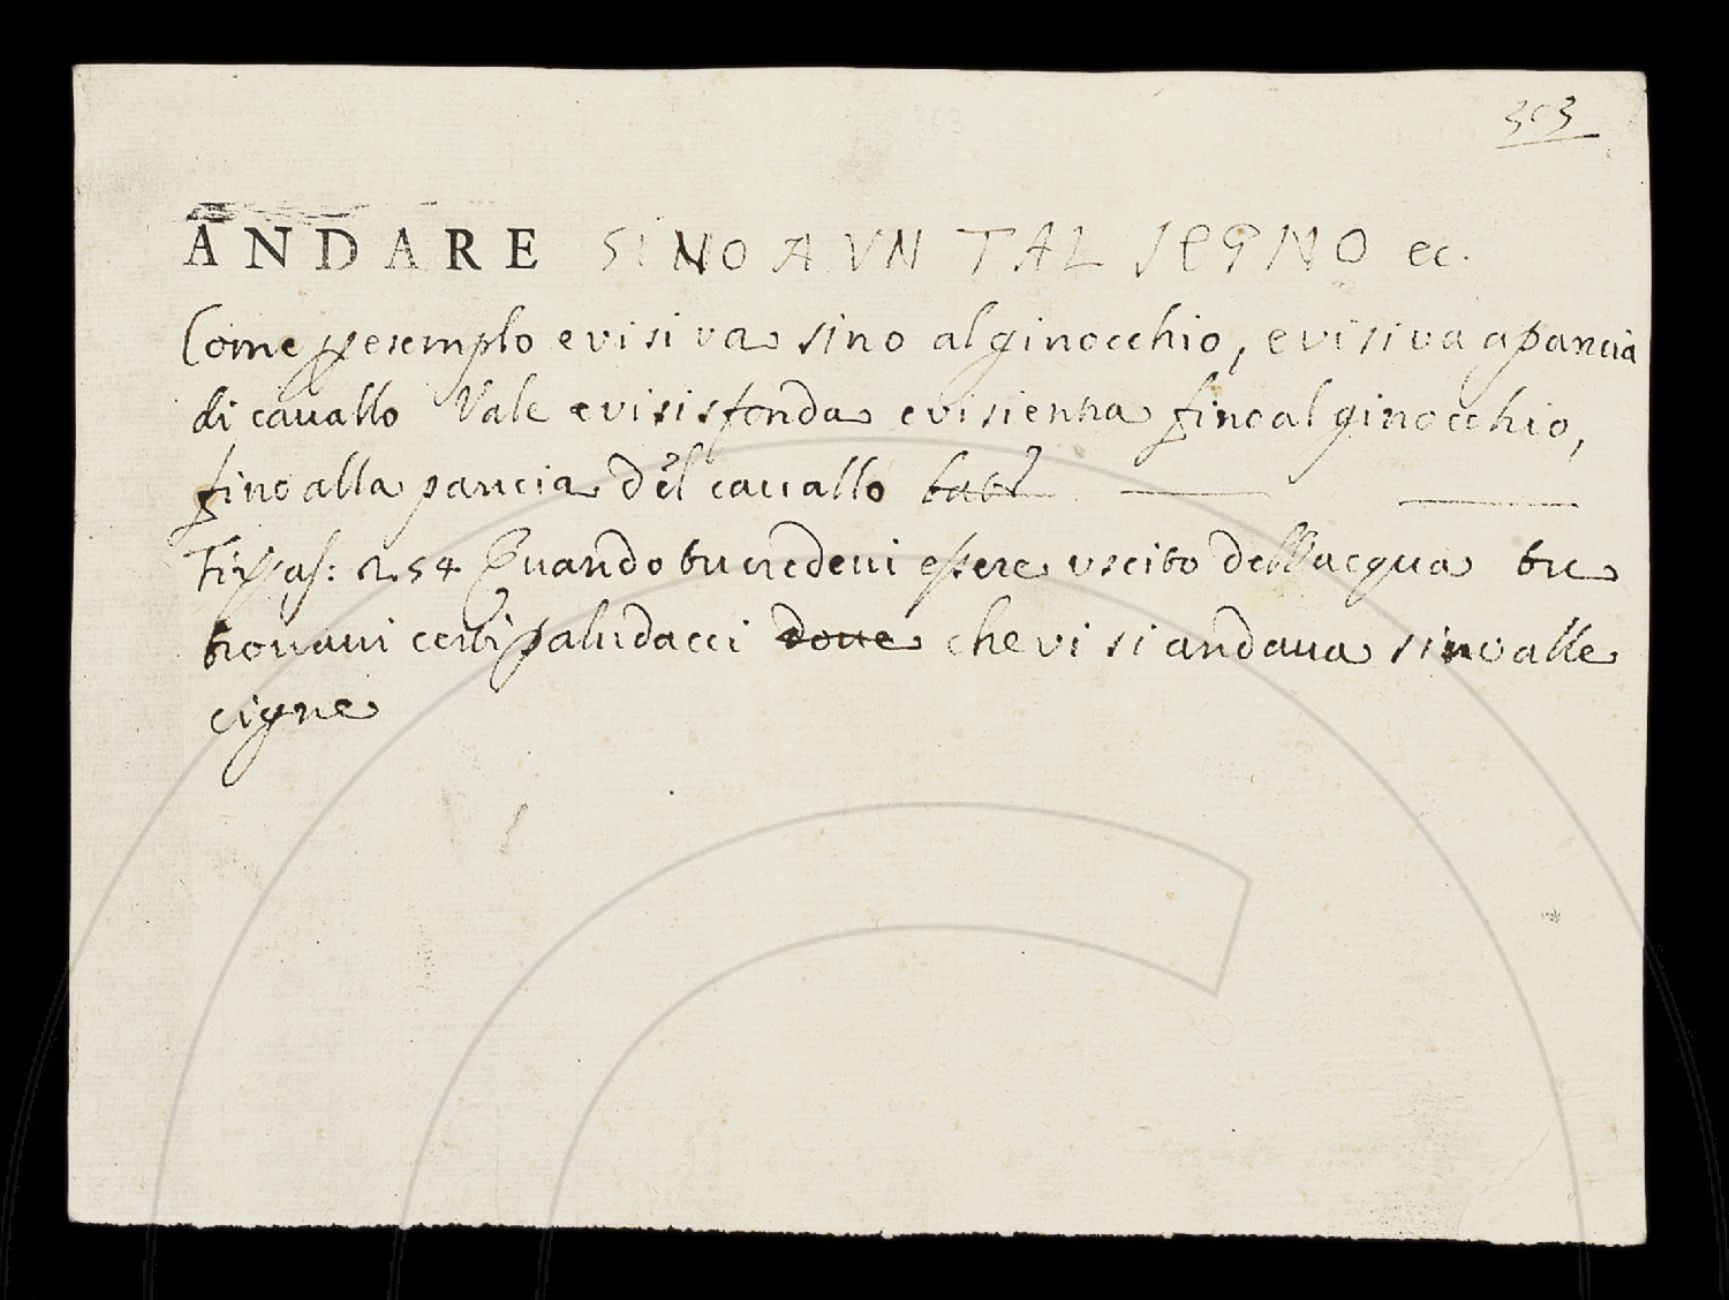 303
ANDARE SINO A VN TAL SEGNO ec.
Come p esemplo e vi si va sino al ginocchio, e vi si va a pancia
di cauallo Vale e vi si sfonda e vi si entra fino al ginocchio,
fino alla pancia del cauallo
254 Quando tu credeui essere uscito dell'acqua tu
trouaui certi paludacci doue che vi si andaua sino alle
cigne